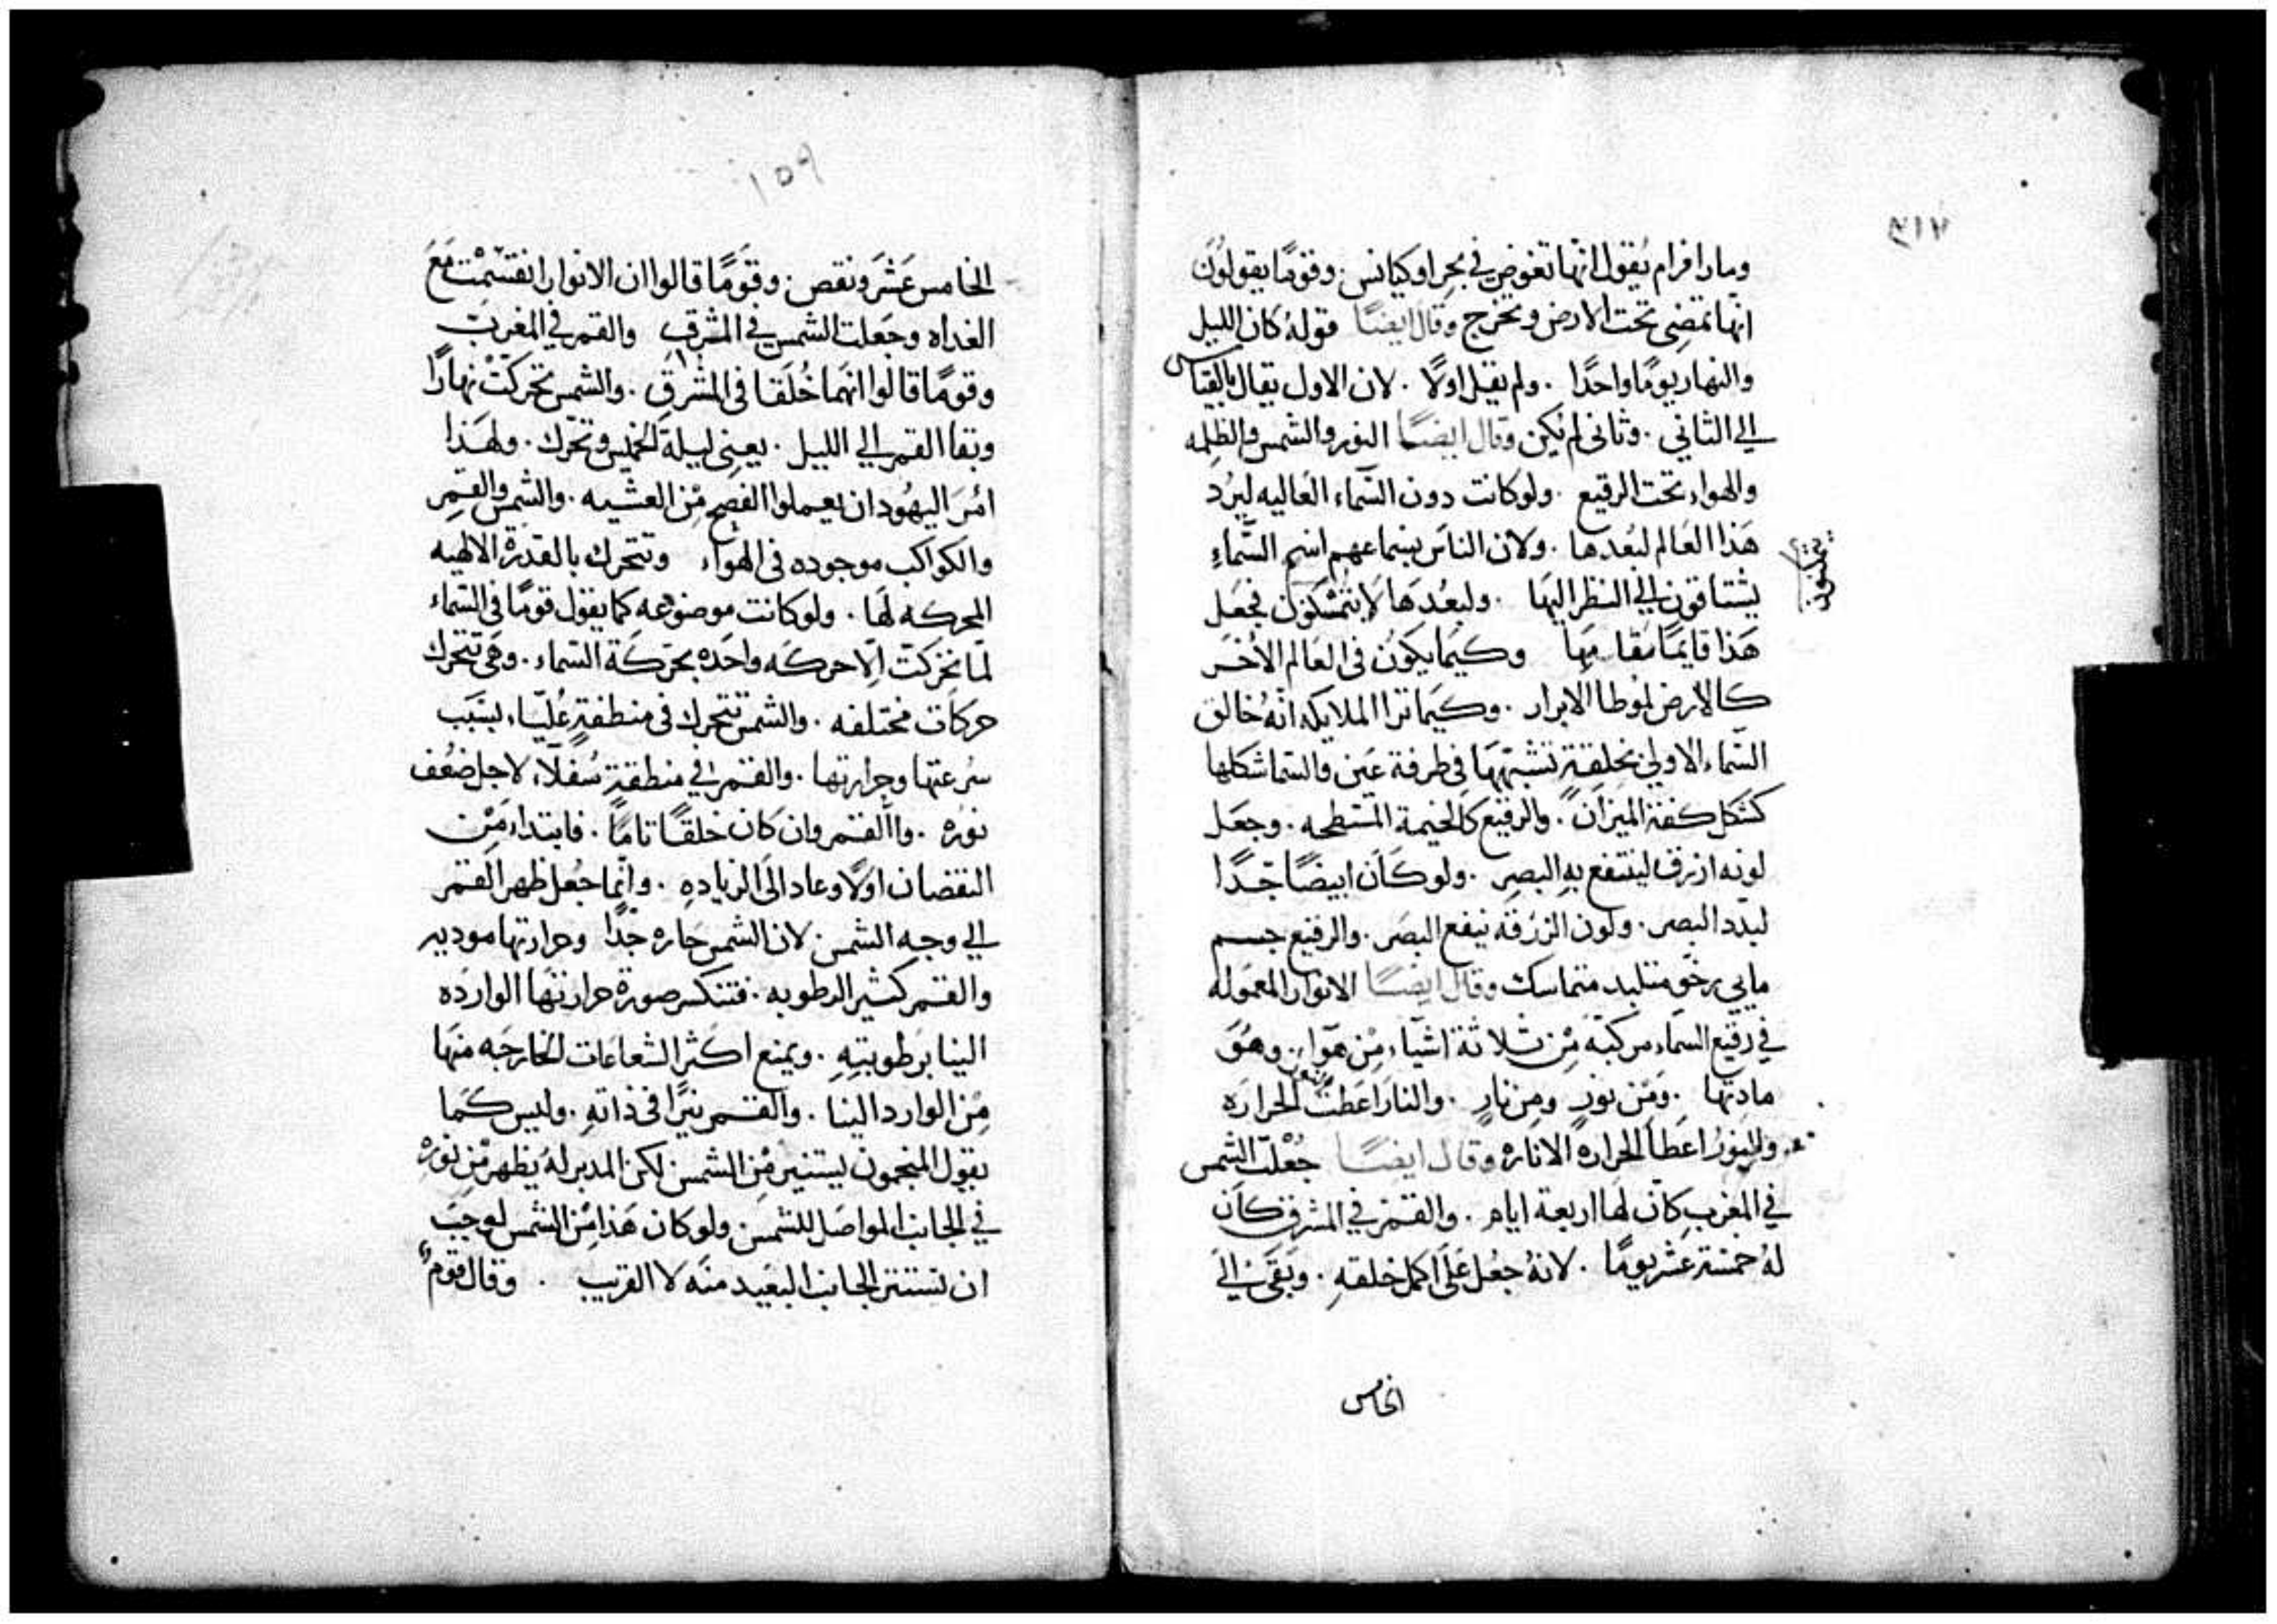 ٣١٧
ومار افرام يقول انها تغوض في بحر اوكيانس . وقومًا يقولون
انها تمضي تحت الارض وتخرج وقال ايضًا قوله كان الليل
والنهار يومًا واحدًا . ولم يقل اولًا . لان الاول يقال بالقياس
الي الثاني . وثاني لم يكن وقال ايضًا النور والشمس والظلمه
والهواء تحت الرقيع . ولو كانت دون السماء العاليه لبرد
هذا العالم لبعدها . ولان الناس بسماعهم اسم السماءِ
يشتاقون الي النظر اليها . ولبعدها لا يتمسكون فجعل
يتمكنون
هذا قايمًا مقامها وكيما يكون في العالم الأخر
كالارض لموطا الابرار . وكيما ترا الملايكه انه خالق
السماء الاولي بخلقةٍ تشبهها في طرفة عين والسما شكلها
كشكل كفة الميزان . والرقيع كالخيمة المسطحه . وجعل
لونه ازرق لينتفع بهِ البصر . ولو كان ابيضًا جدًا
لبدد البصر . ولون الزرقه ينفع البصر . والرقيع جسم
مايي رخو متلبد متماسك وقال ايضًا الانوار المعموله
في رقيع السماء مركبه من ثلاثة اشياء من هواء . وهو
مادتها . ومن نورٍ ومن نارٍ . والنار اعطت النور الحراره
والنورُ اعطا الحرارة الاناره وقال ايضًا جُعلت الشمس
في المغرب كان لها اربعة ايام . والقمر في المشرق كان
لهُ خمسة عشر يومًا . لانهُ جعل علي اكمل خلقهِ . وبقي الي
الخامس
١٥٩
الخامس عشر ونقص . وقومًا قالوا ان الانوار انقسمت مع
الغداه وجعلت الشمس في المشرق والقمر في المغرب
وقومًا قالوا انهما خُلقا في المشرق . والشمس تحركت نهارًا
وبقا القمر الي الليل . يعني ليلة الخميس وتحرك . ولهذا
امر اليهود ان يعملوا الفصح من العشيه . والشمس والقمر
والكواكب موجوده في الهواء وتتحرك بالقدرة الالهيه
المحركه لها . ولو كانت موضوعه كما يقول قومًا في السماء
لما تحركت الا حركه واحده بحركة السماء . وهي تتحرك
حركات مختلفه . والشمس تتحرك في منطقةٍ عُلياء لسبب
سرعتها وحرارتها . والقمر في منطقةٍ سُفلاء لاجل ضعف
نوره . واالقمر وان كان خلقًا تامًا . فابتداء من
النقصان اولًا وعاد الي الزياده . وانما جعل ظهر القمر
الي وجه الشمس لان الشمس حاره جدًا وحرارتها موديه
والقمر كثير الرطوبه . فتنكسر صورة حرارتها الوارده
الينا برطوبتهِ . ويمنع اكثر الشعاعات الخارجه منها
من الوارد الينا . والقمر نيرًا في ذاتهِ . وليس كما
يقول المنجمون ليستنير من الشمس لكن المدبر لهُ يظهر من نوره
في الجانب المواصل للشمس ولو كان هذا من الشمس لوجب
ان تستتر الجانب البعيد منه لا القريب . وقال قومٌ